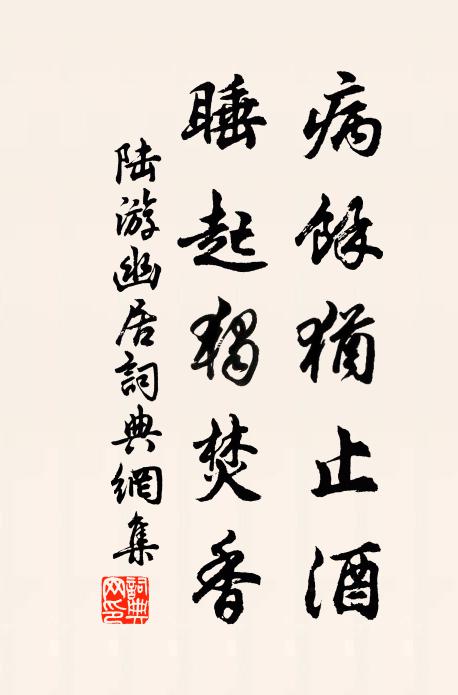 病餘猶止酒
睡起獨焚香
陆游幽居詞典網集
詞典网印